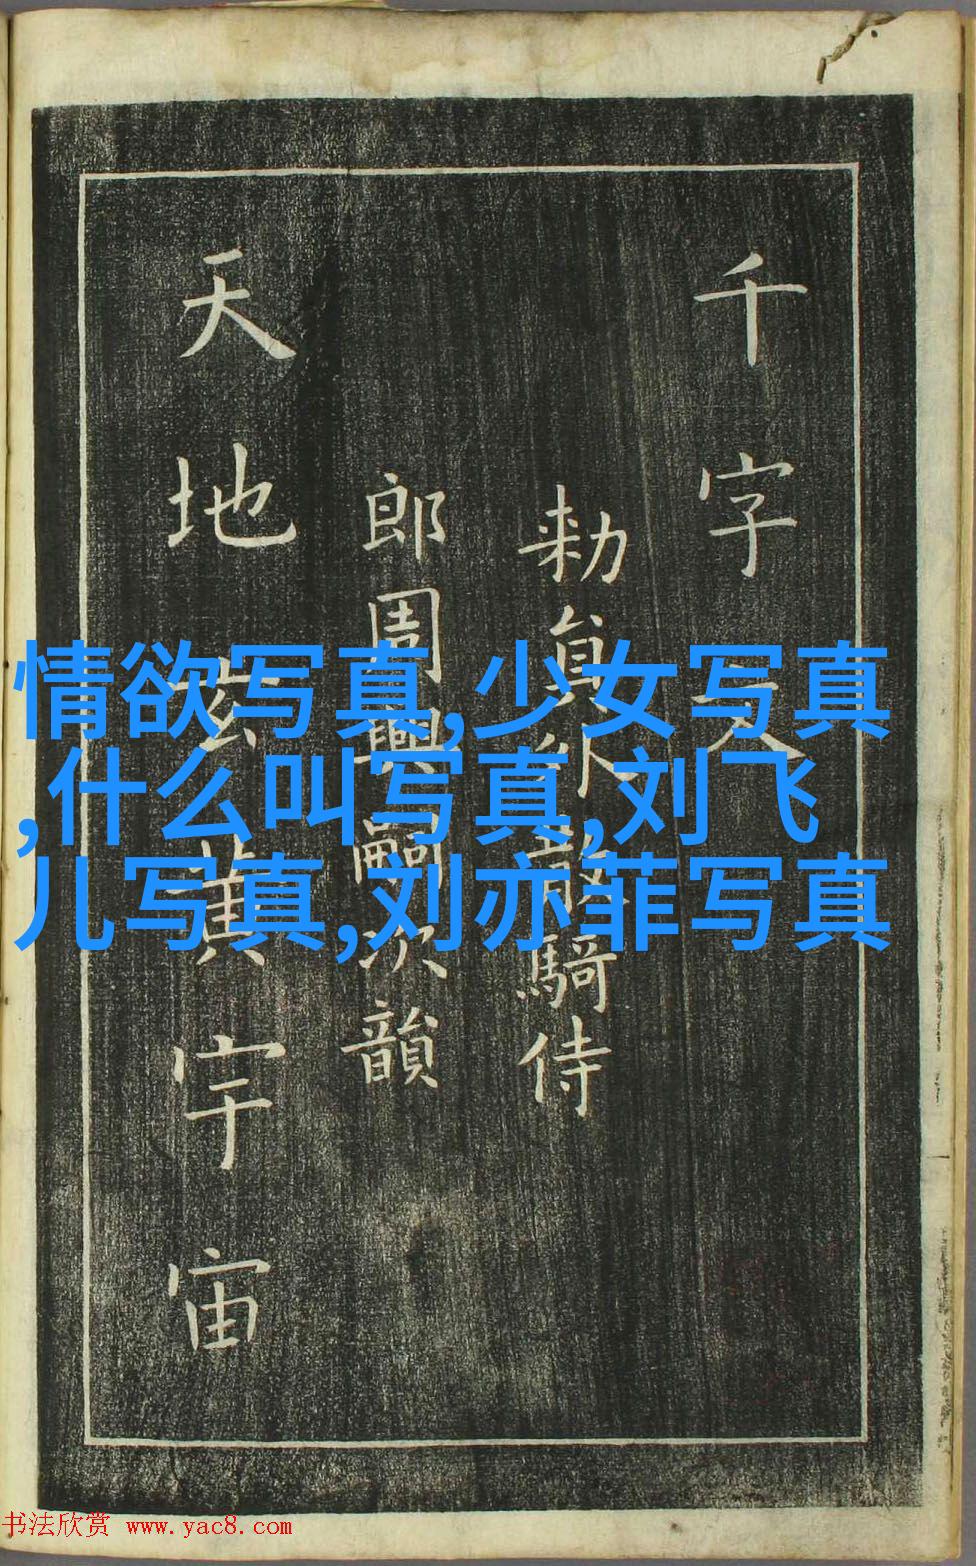 千字文
敕員外散騎侍
郎周興嗣次韻
天地玄黃宇宙
情欲写真,少女写真
,什么叫写真,刘飞
儿写真,刘亦菲写真
书法欣赏 www.yac8.com